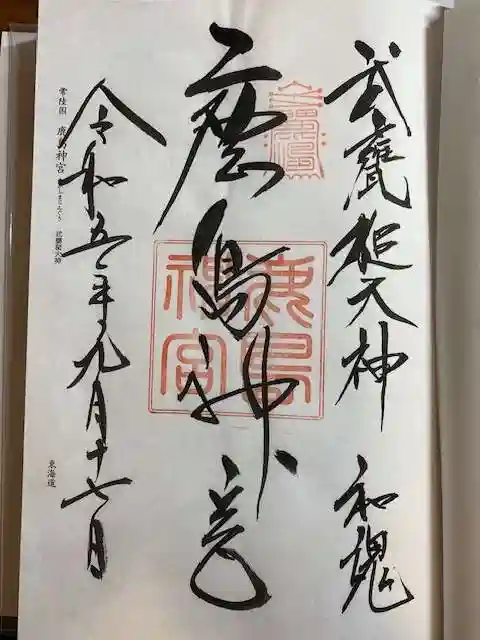 武甕槌大神 和魂
鹿島神宮
鹿島
神宮
令和五年九月十七日
常陸国 鹿島神宮
東海道